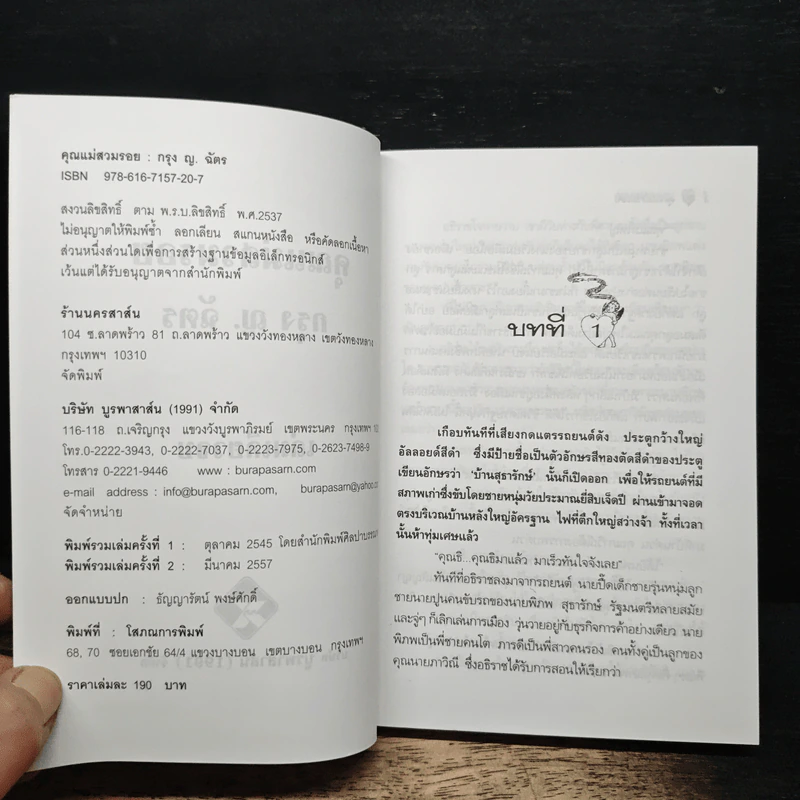 คุณแม่สวมรอย : กรุง ญ. ฉัตร
ISBN 978-616-7157-20-7
สงวนลิขสิทธิ์ ตาม พ.ร.บ.ลิขสิทธิ์ พ.ศ.2537
ไม่อนุญาตให้พิมพ์ซ้ำ ลอกเลียน สแกนหนังสือ หรือคัดลอกเนื้อหา
ส่วนหนึ่งส่วนใดเพื่อการสร้างฐานข้อมูลอิเล็กทรอนิกส์
เว้นแต่ได้รับอนุญาตจากสำนักพิมพ์
ร้านนครสาส์น
104 ซ.ลาดพร้าว 81 ถ.ลาดพร้าว แขวงวังทองหลาง เขตวังทองหลาง
กรุงเทพฯ 10310
จัดพิมพ์
บริษัท บูรพาสาส์น (1991) จำกัด
116-118 ถ.เจริญกรุง แขวงวังบูรพาภิรมย์ เขตพระนคร กรุงเทพฯ
โทร.0-2222-3943, 0-2222-7037, 0-2223-7975, 0-2623-7498-9
โทรสาร 0-2221-9446 www : burapasarn.com
e-mail address : info@burapasarn.com, burapasarn@yahoo.co
จัดจำหน่าย
พิมพ์รวมเล่มครั้งที่ 1 : ตุลาคม 2545 โดยสำนักพิมพ์ศิลปาบรรณา
พิมพ์รวมเล่มครั้งที่ 2 : มีนาคม 2557
ออกแบบปก : ธัญญารัตน์ พงษ์ศักดิ์
พิมพ์ที่ : โสภณการพิมพ์
68, 70 ซอยเอกชัย 64/4 แขวงบางบอน เขตบางบอน กรุงเทพฯ
ราคาเล่มละ 190 บาท
บทที่ 1
เกือบทันทีที่เสียงกดแตรรถยนต์ดัง ประตูกว้างใหญ่
อัลลอยด์สีดำ ซึ่งมีป้ายชื่อเป็นตัวอักษรสีทองตัดสีดำของประตู
เขียนอักษรว่า 'บ้านสุธารักษ์' นั้นก็เปิดออก เพื่อให้รถยนต์ที่มี
สภาพเก่าซึ่งขับโดยชายหนุ่มวัยประมาณยี่สิบเจ็ดปี ผ่านเข้ามาจอด
ตรงบริเวณบ้านหลังใหญ่อัครฐาน ไฟที่ตึกใหญ่สว่างจ้า ทั้งที่เวลา
นั้นห้าทุ่มเศษแล้ว
"คุณธิ...คุณธิมาแล้ว มาเร็วทันใจจังเลย"
ทันทีที่อธิราชลงมาจากรถยนต์ นายปี๊ดเด็กชายรุ่นหนุ่มลูก
ชายนายปูนคนขับรถของนายพิภพ สุธารักษ์ รัฐมนตรีหลายสมัย
และจู่ๆ ก็เลิกเล่นการเมือง วุ่นวายอยู่กับธุรกิจการค้าอย่างเดียว นาย
พิภพเป็นพี่ชายคนโต ภารดีเป็นพี่สาวคนรอง คนทั้งคู่เป็นลูกของ
คุณนายภาวิณี ซึ่งอธิราชได้รับการสอนให้เรียกว่า